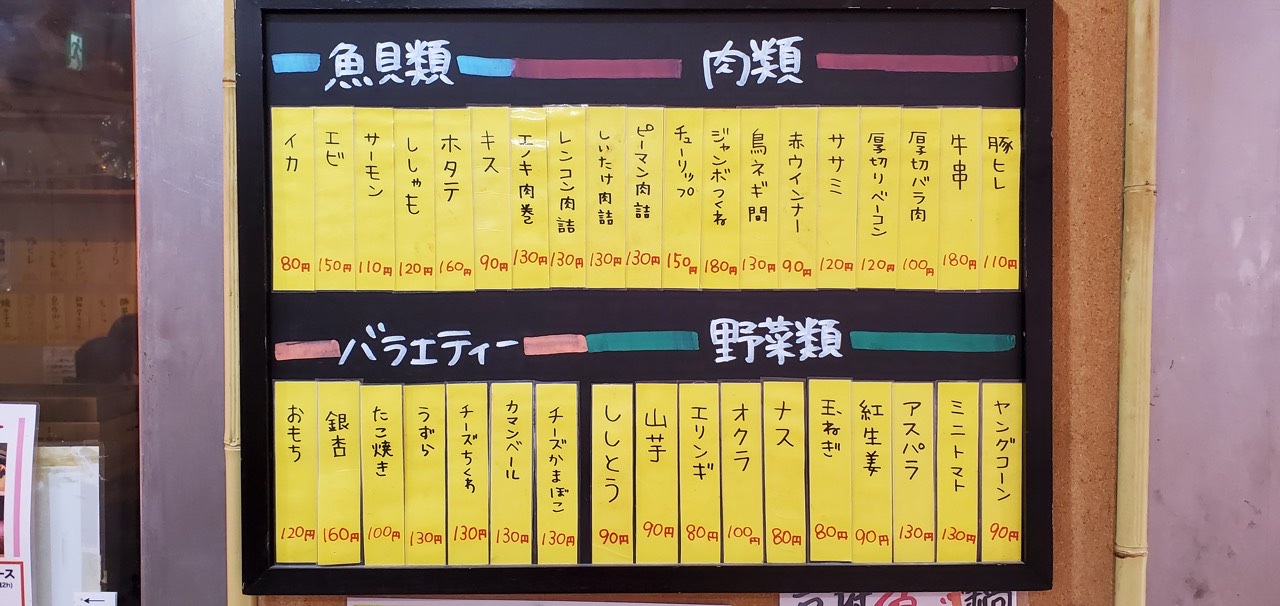 魚貝類
肉類
豚ヒレ 110円
牛串 180円
厚切バラ肉 100円
厚切りベーコン 120円
ササミ 120円
赤ウインナー 90円
鳥ネギ間 130円
ジャンボつくね 180円
チューリップ 150円
ピーマン肉詰 130円
しいたけ肉詰 130円
レンコン肉詰 130円
エノキ肉巻 130円
キス 90円
ホタテ 160円
ししゃも 120円
サーモン 110円
エビ 150円
イカ 80円
バラエティー
野菜類
ヤングコーン 90円
ミニトマト 130円
アスパラ 130円
紅生姜 90円
玉ねぎ 80円
ナス 80円
オクラ 100円
エリンギ 80円
山芋 90円
ししとう 90円
チーズかまぼこ 130円
カマンベール 130円
チーズちくわ 130円
うずら 130円
たこ焼き 100円
銀杏 160円
おもち 120円